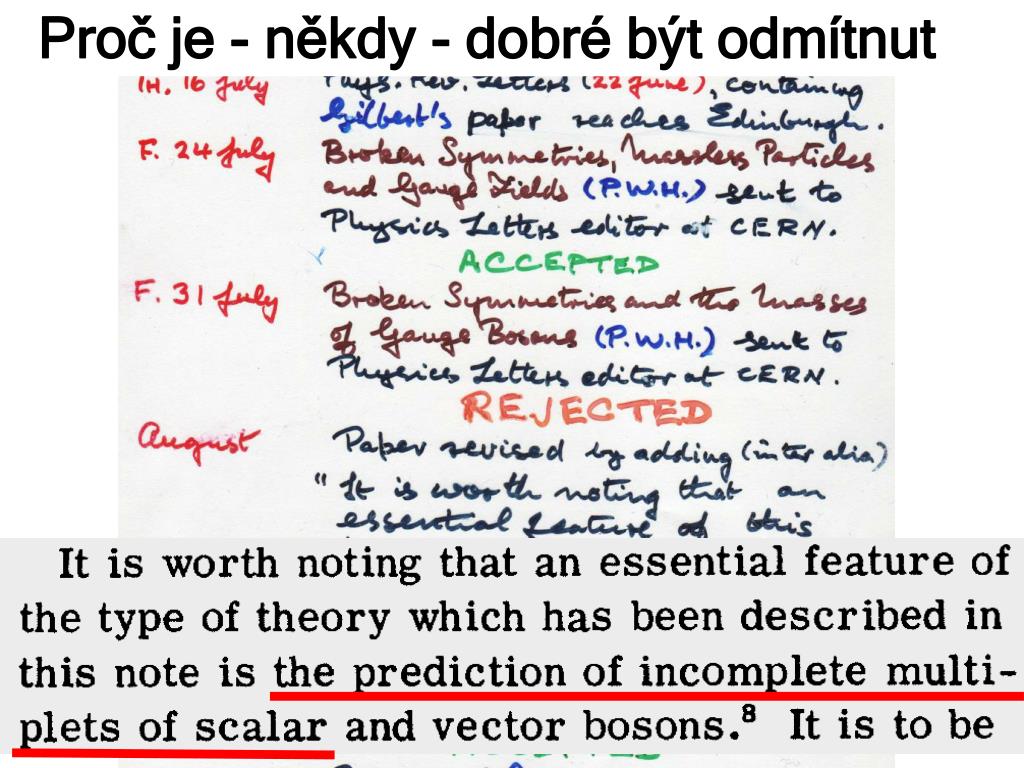 Proč je - někdy - dobré být odmítnut
TH. 16 July Phys. Rev. Letters (22 June), containing
Gilbert's paper reaches Edinburgh.
F. 24 July Broken Symmetries, Massless Particles
and Gauge Fields (P.W.H.) sent to
Physics Letters editor at CERN.
ACCEPTED
F. 31 July Broken Symmetries and the Masses
of Gauge Bosons (P.W.H.) sent to
Physics Letters editor at CERN.
REJECTED
August Paper revised by adding (inter alia)
"It is worth noting that an
essential feature of this
It is worth noting that an essential feature of
the type of theory which has been described in
this note is the prediction of incomplete multi-
plets of scalar and vector bosons.⁸ It is to be